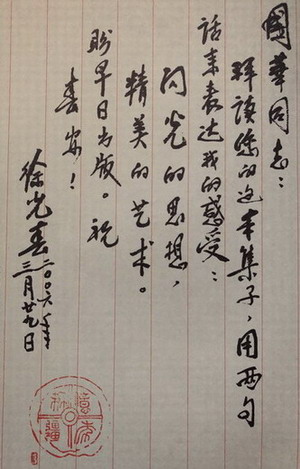 國華同志：
拜读您的这本集子，用两句
话来表达我的感受：
闪光的思想，
精美的艺术。
盼早日出版。祝
春安！
徐光春
二〇〇六年
三月廿九日